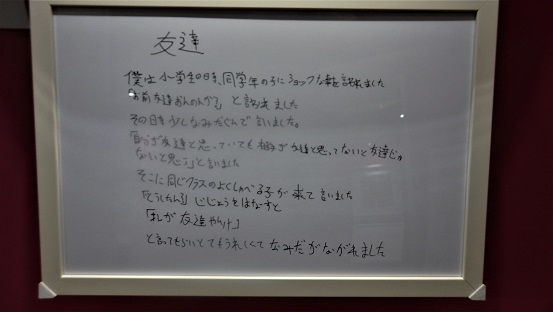 友達
僕は小学生の時、同学年の子にショックな事を言われました
「お前友達おんのんか?」と言われました
その時少しなみだぐんで言いました。
「自分が友達と思っていても相手が友達と思ってないと友達じゃ
ないと思う」と言いました
そこに同じクラスのよくしゃべる子が来て言いました
「どうしたん?」じじょうをはなすと
「オレが友達やんけ」
と言ってもらいとてもうれしくてなみだがながれました